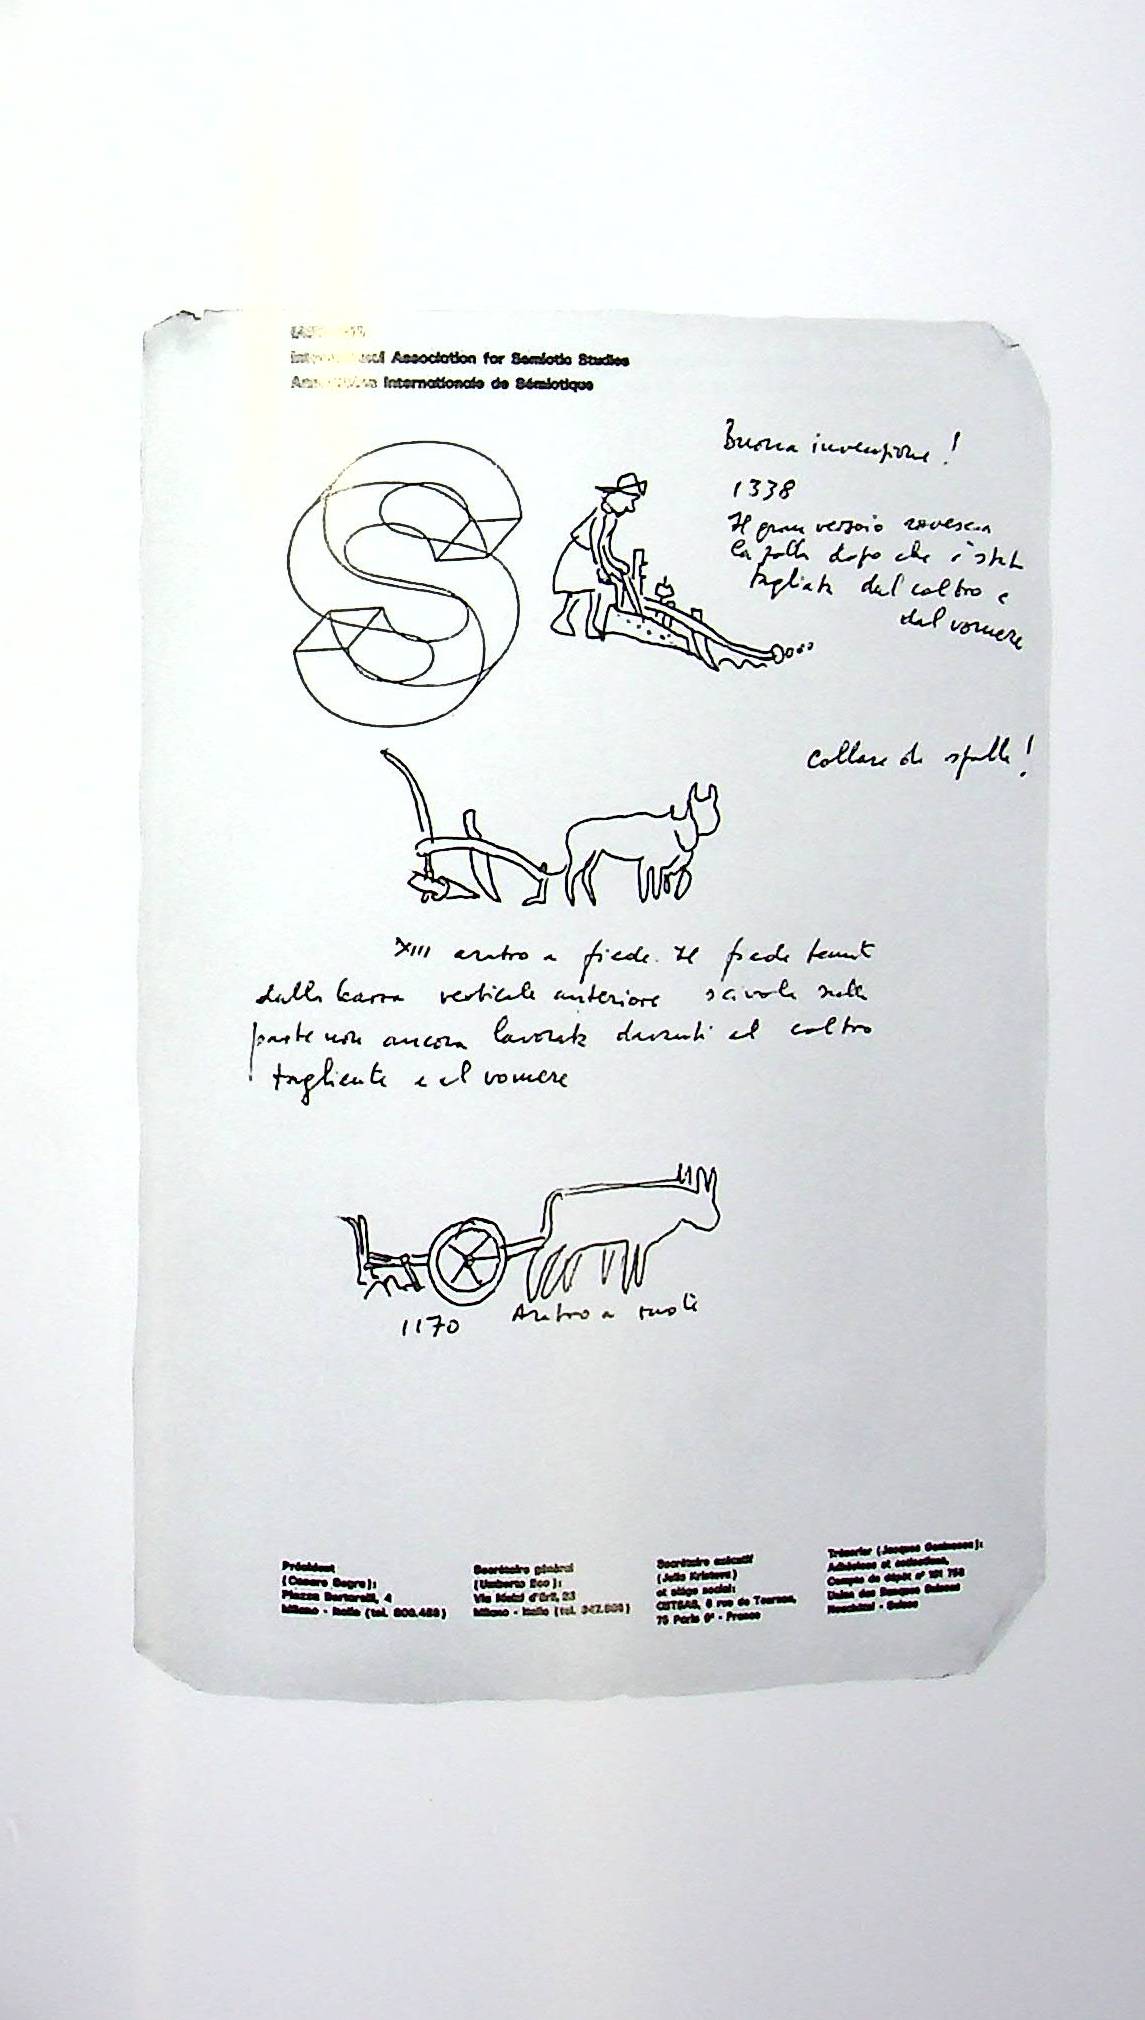 International Association for Semiotic Studies
Association Internationale de Sémiotique
Buona invenzione!
1338
Il gran versoio rovescia
la zolla dopo che è stata
tagliata dal coltro e
dal vomere
Collare da spalla!
XIII aratro a piede. Il piede tenuto
dalla barra verticale anteriore scivola sulla
parte non ancora lavorata davanti al coltro
tagliente e al vomere
1170 Aratro a ruote
Président
(Cesare Segre):
Piazza Bertarelli, 4
Milano - Italie (tel.
Secrétaire général
(Umberto Eco):
Via
Milano - Italie (tel.
Secrétaire exécutif
(Julia Kristeva)
et siège social:
6 rue de Tournon,
75 Paris 6e - France
Trésorier (Jacques Geninasca):
Adhésions et cotisations,
Compte de dépôt n°
Union des Banques Suisses
Neuchâtel - Suisse